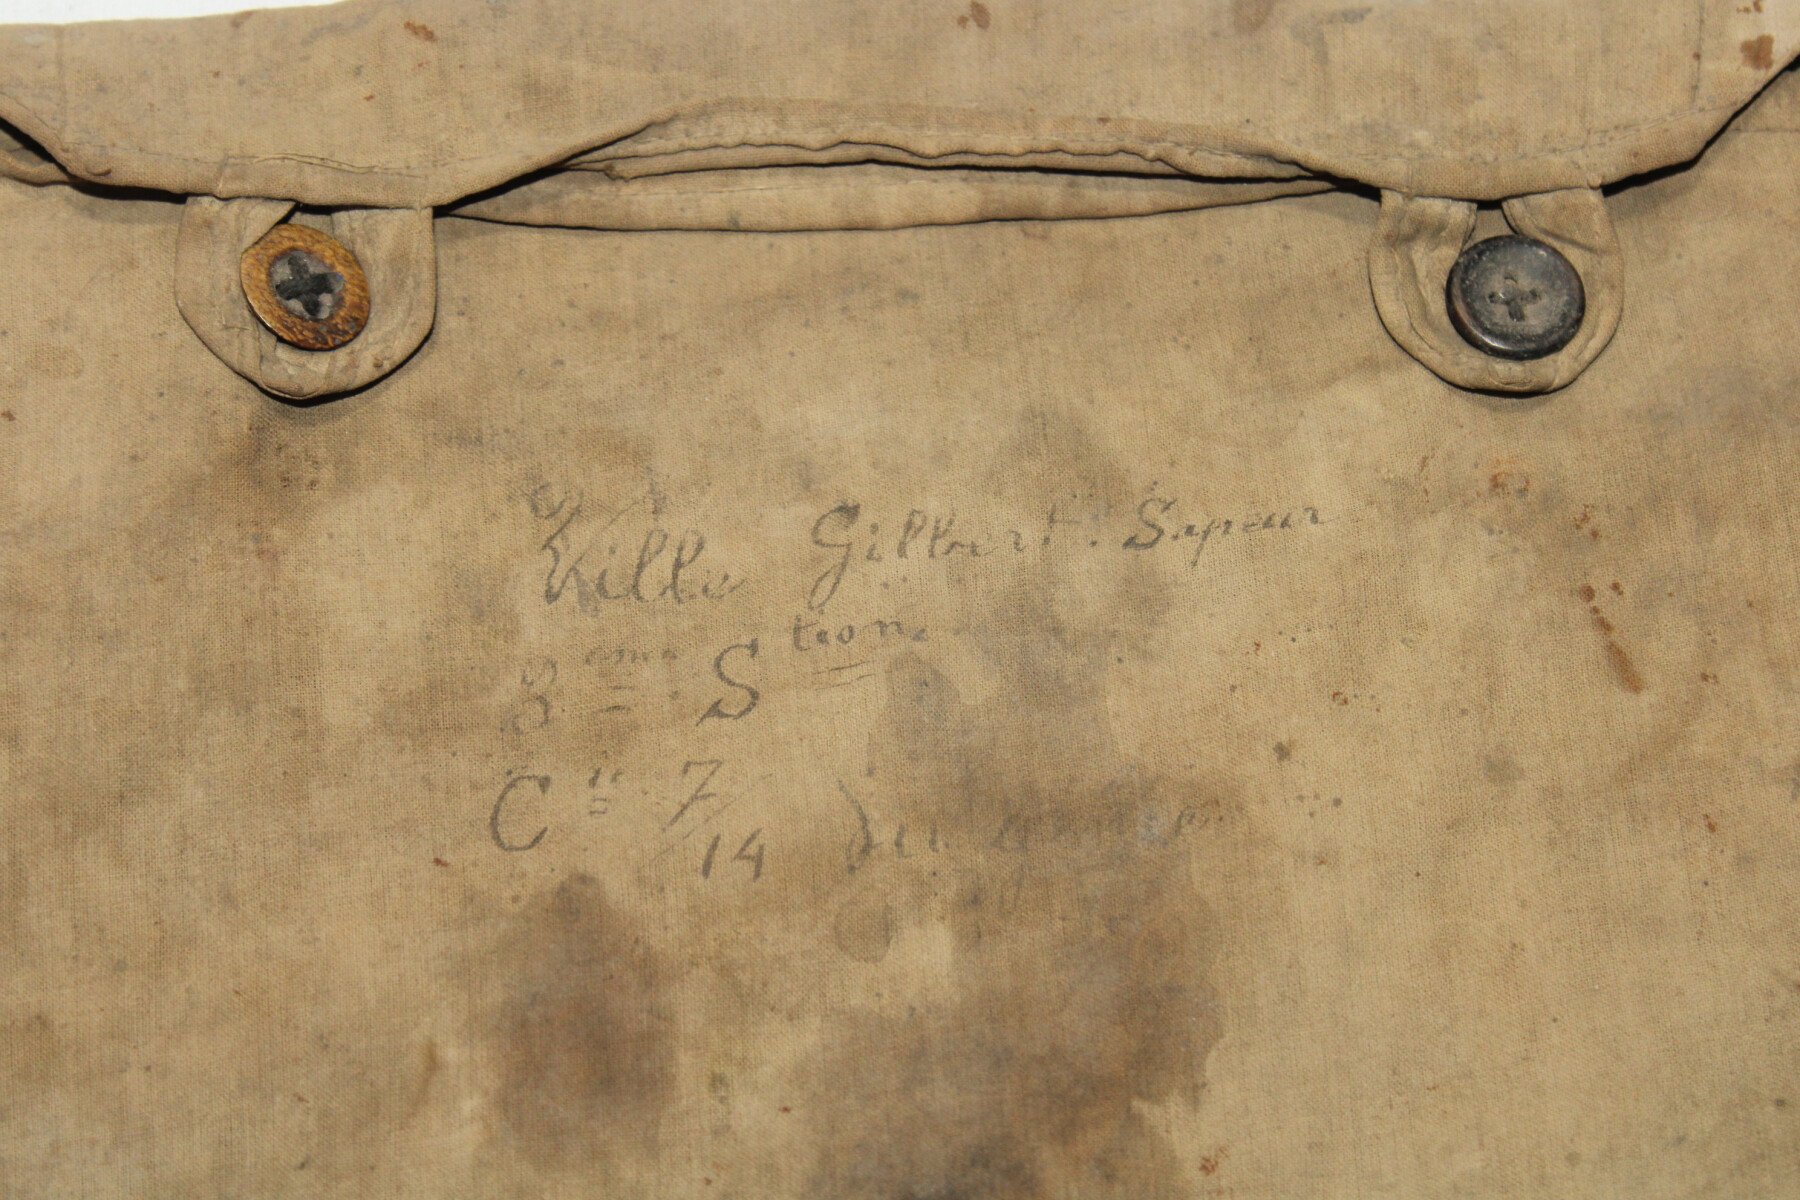 Ville Gilbert. Sapeur
8eme Stion.
Cie 7/14 du génie